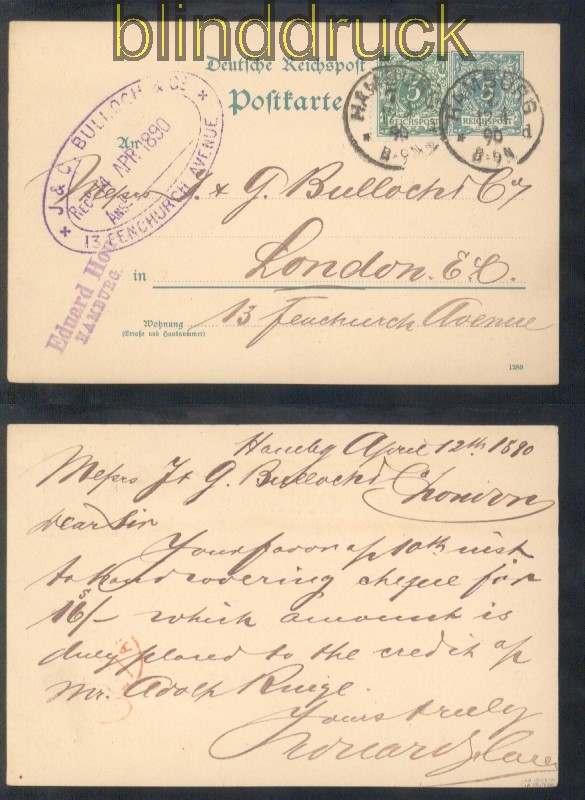 blinddruck
Deutsche Reichspost
Postkarte
An
5
REICHSPOST
5
REICHSPOST
HAMBURG
90
8-9N
HAMBURG
d
90
8-9N
J. & G. BULLOCH & Co
RECD 14 APR. 1890
ANSD
13 FENCHURCH AVENUE
Eduard
HAMBURG.
Messrs J. & G. Bulloch & Co
in London. E.C.
Wohnung 13 Fenchurch Avenue
(Straße und Hausnummer)
1289
Hambg April 12th 1890
Messrs J & G. Bulloch & Co London
Dear Sir
Your favor of 10th inst
to hand covering cheque for
16s/- which amount is
duly placed to the credit of
Mr. Adolph
Yours truly
Eduard